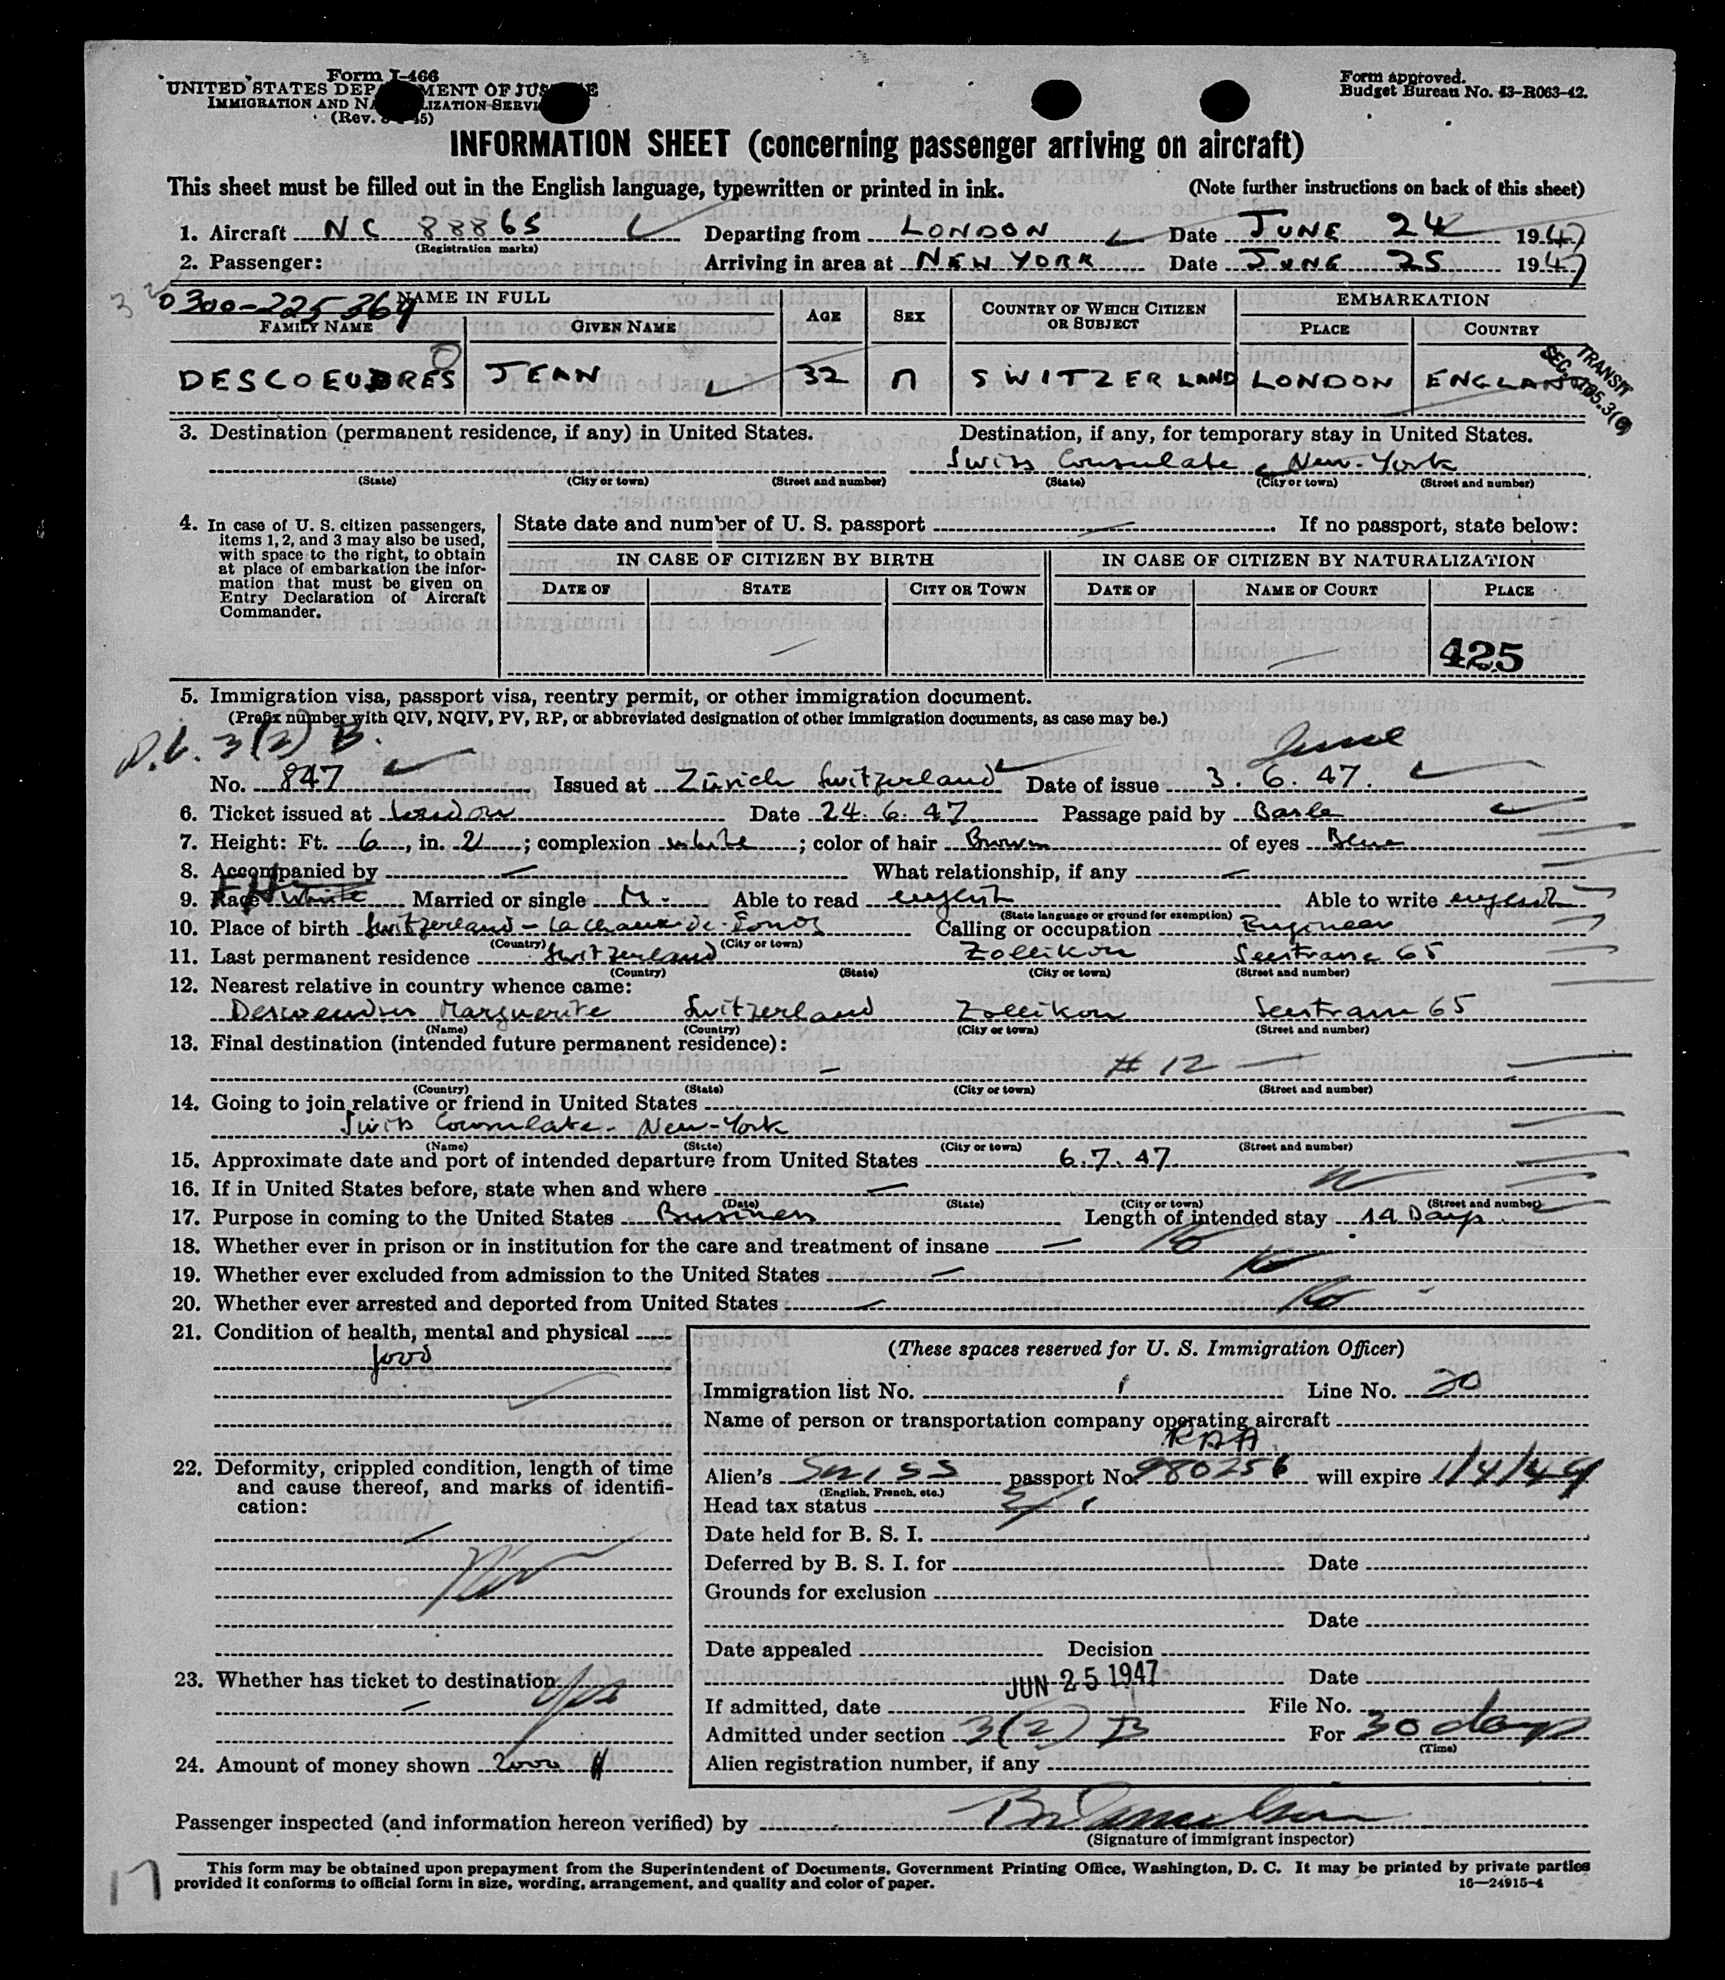 Form I-466
UNITED STATES DEP MENT OF JUS E
IMMIGRATION AND NA LIZATION SERVI
(Rev. 45)
Form approved.
Budget Bureau No. 43-R063-42.
INFORMATION SHEET (concerning passenger arriving on aircraft)
This sheet must be filled out in the English language, typewritten or printed in ink. (Note further instructions on back of this sheet)
1. Aircraft NC 88865 Departing from LONDON Date JUNE 24 1947
(Registration marks)
2. Passenger: Arriving in area at NEW YORK Date JUNE 25 1947
0300-225369 NAME IN FULL AGE SEX COUNTRY OF WHICH CITIZEN OR SUBJECT EMBARKATION
FAMILY NAME GIVEN NAME PLACE COUNTRY
DESCOEUDRES JEAN 32 M SWITZERLAND LONDON ENGLAND
TRANSIT
3. Destination (permanent residence, if any) in United States. Destination, if any, for temporary stay in United States.
Swiss Consulate New-York
(State) (City or town) (Street and number) (State) (City or town) (Street and number)
4. In case of U. S. citizen passengers, items 1, 2, and 3 may also be used, with space to the right, to obtain at place of embarkation the information that must be given on Entry Declaration of Aircraft Commander.
State date and number of U. S. passport . If no passport, state below:
IN CASE OF CITIZEN BY BIRTH IN CASE OF CITIZEN BY NATURALIZATION
DATE OF STATE CITY OR TOWN DATE OF NAME OF COURT PLACE
425
5. Immigration visa, passport visa, reentry permit, or other immigration document.
(Prefix number with QIV, NQIV, PV, RP, or abbreviated designation of other immigration documents, as case may be.)
3(2) B. June
No. 847 Issued at Zürich Switzerland Date of issue 3. 6. 47.
6. Ticket issued at London Date 24. 6. 47. Passage paid by Basle
7. Height: Ft. 6, in. 2; complexion white; color of hair Brown of eyes Blue
8. Accompanied by — What relationship, if any —
9. Race White Married or single M. Able to read english Able to write english
(State language or ground for exemption)
10. Place of birth Switzerland - La Chaux-de-Fonds Calling or occupation Engineer
(Country) (City or town)
11. Last permanent residence Switzerland Zollikon Seestrasse 65
(Country) (State) (City or town) (Street and number)
12. Nearest relative in country whence came:
Descoeudres Marguerite Switzerland Zollikon Seestrasse 65
(Name) (Country) (City or town) (Street and number)
13. Final destination (intended future permanent residence):
— # 12 —
(Country) (State) (City or town) (Street and number)
14. Going to join relative or friend in United States
Swiss Consulate - New-York
(Name) (State) (City or town) (Street and number)
15. Approximate date and port of intended departure from United States 6. 7. 47
16. If in United States before, state when and where —
(Date) (State) (City or town) (Street and number)
17. Purpose in coming to the United States Business Length of intended stay 14 Days
18. Whether ever in prison or in institution for the care and treatment of insane — No
19. Whether ever excluded from admission to the United States — No
20. Whether ever arrested and deported from United States — No
21. Condition of health, mental and physical
good
22. Deformity, crippled condition, length of time and cause thereof, and marks of identification:
—
23. Whether has ticket to destination yes
—
24. Amount of money shown 2000 $
(These spaces reserved for U. S. Immigration Officer)
Immigration list No. 1 Line No. 20
Name of person or transportation company operating aircraft
PAA
Alien's Swiss passport No. 980256 will expire 1/4/49
(English, French, etc.)
Head tax status
Date held for B. S. I.
Deferred by B. S. I. for Date
Grounds for exclusion
Date
Date appealed Decision
Date
If admitted, date JUN 25 1947 File No.
Admitted under section 3(2) B For 30 days
(Time)
Alien registration number, if any
Passenger inspected (and information hereon verified) by
(Signature of immigrant inspector)
17
This form may be obtained upon prepayment from the Superintendent of Documents, Government Printing Office, Washington, D. C. It may be printed by private parties
provided it conforms to official form in size, wording, arrangement, and quality and color of paper. 16—24915-4